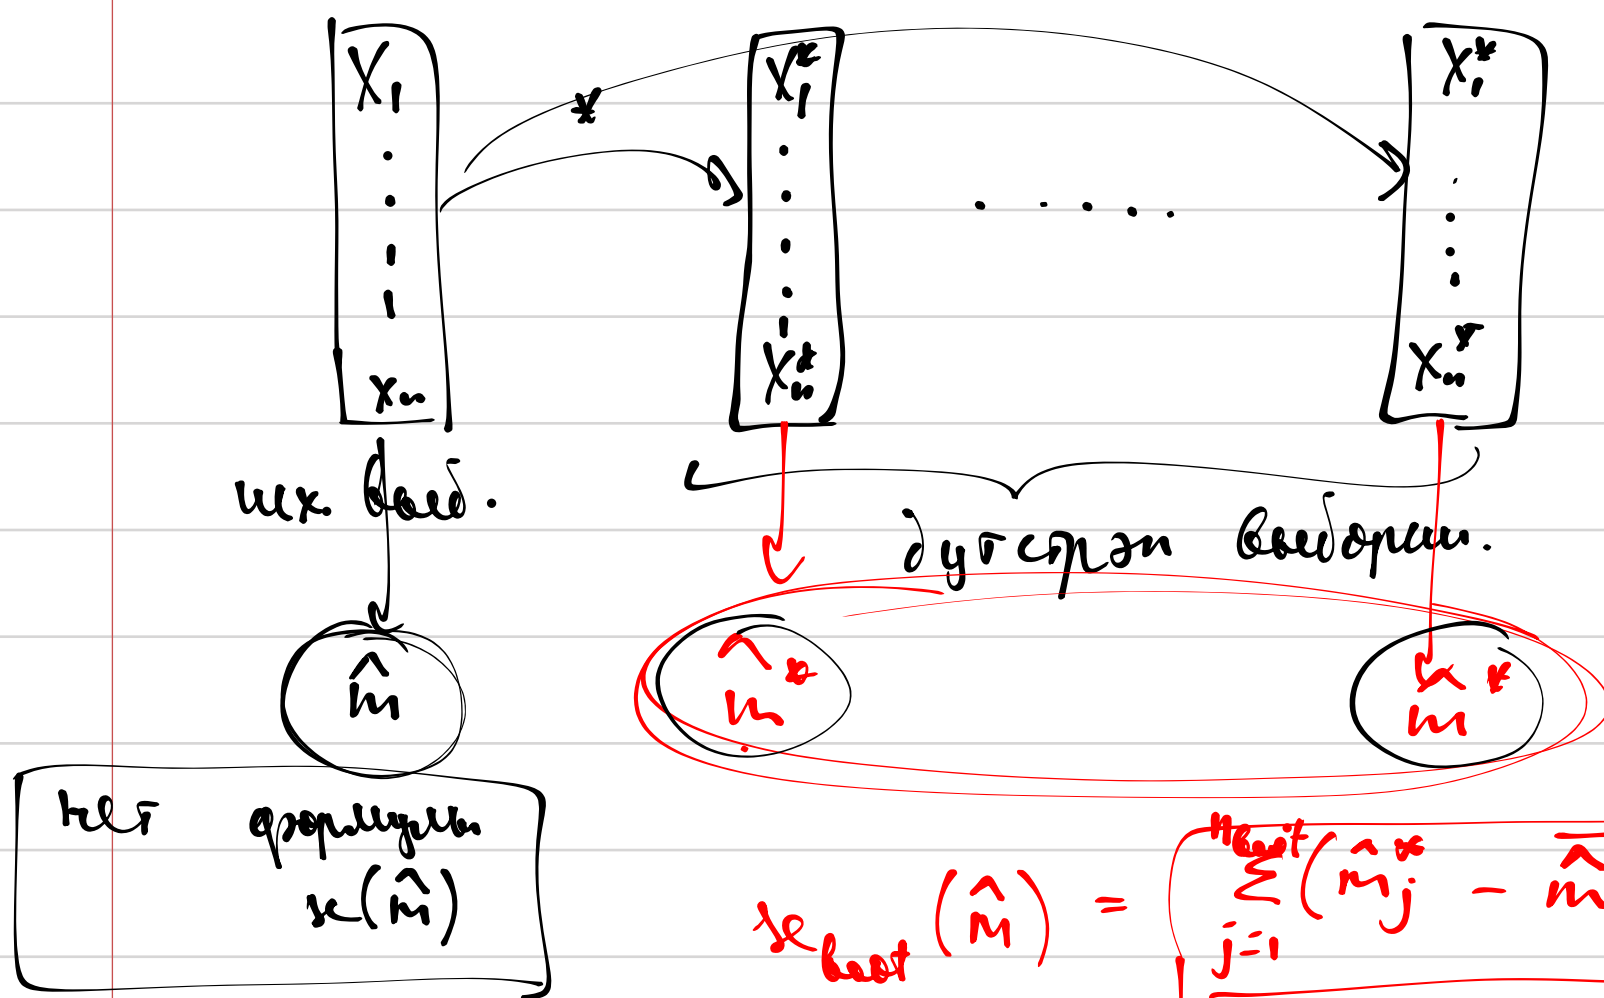 X₁ X₁* X₁*
*
. . . . .
xₙ Xₙ* Xₙ*
исх. выб.
бутстрэп выборки.
m̂ m̂* m̂*
нет формулы
se(m̂)
se_boot (m̂) = √ Σ_{j=1}^{n_boot} (m̂*_j − m̂̄